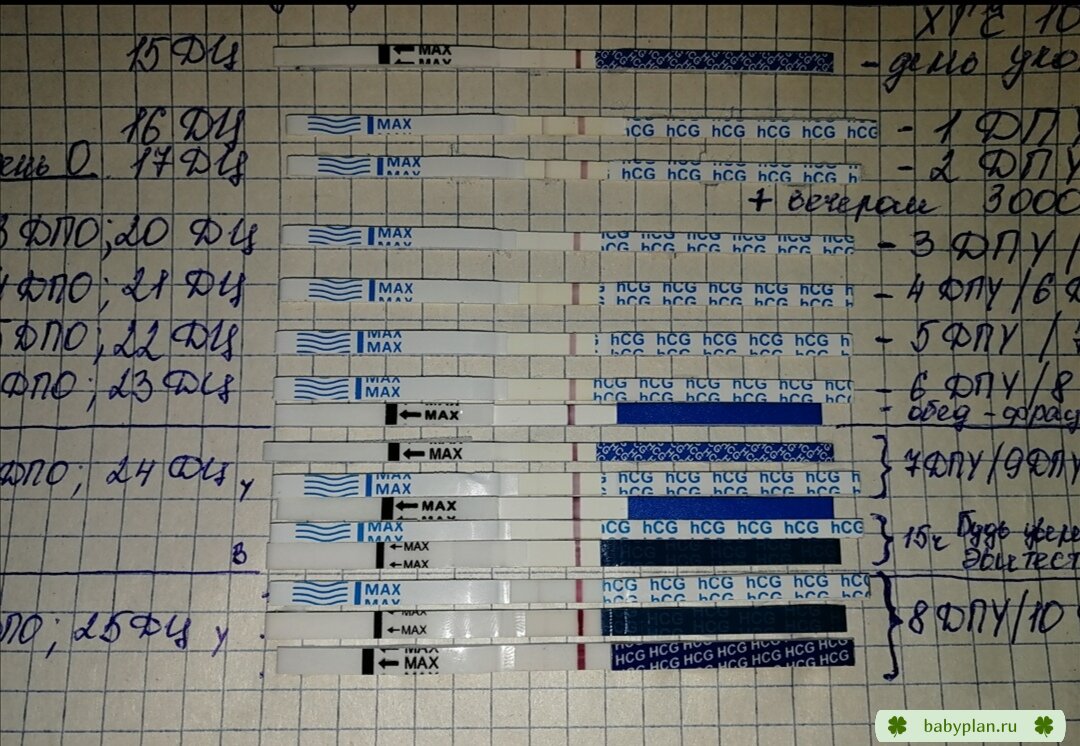 ХГЧ 10
15 ДЦ MAX MAX - день уко
16 ДЦ MAX hCG hCG hCG hCG hCG hCG - 1 ДП
О 17 ДЦ MAX MAX hCG hCG hCG hCG hCG - 2 ДПУ
+ вечером 3000
ДПО; 20 ДЦ MAX MAX hCG hCG hCG hCG hCG hCG - 3 ДПУ/
ДПО; 21 ДЦ MAX MAX hCG hCG hCG hCG hCG - 4 ДПУ/6
ДПО; 22 ДЦ MAX MAX hCG hCG hCG hCG hCG h - 5 ДПУ/
ДПО; 23 ДЦ MAX MAX hCG hCG hCG hCG hCG hCG - 6 ДПУ/8
MAX - обед -
MAX 7 ДПУ/9 ДПУ
ДПО; 24 ДЦ, у MAX MAX hCG hCG hCG hCG hCG h
MAX
MAX hCG hCG hCG hCG hCG hCG 15ч Будь
в MAX MAX HCG
MAX MAX hCG hCG hCG hCG hCG hCG
ПО; 25 ДЦ у MAX MAX 8 ДПУ/10
MAX MAX HCG HCG HCG HCG HCG HCG HCG
babyplan.ru